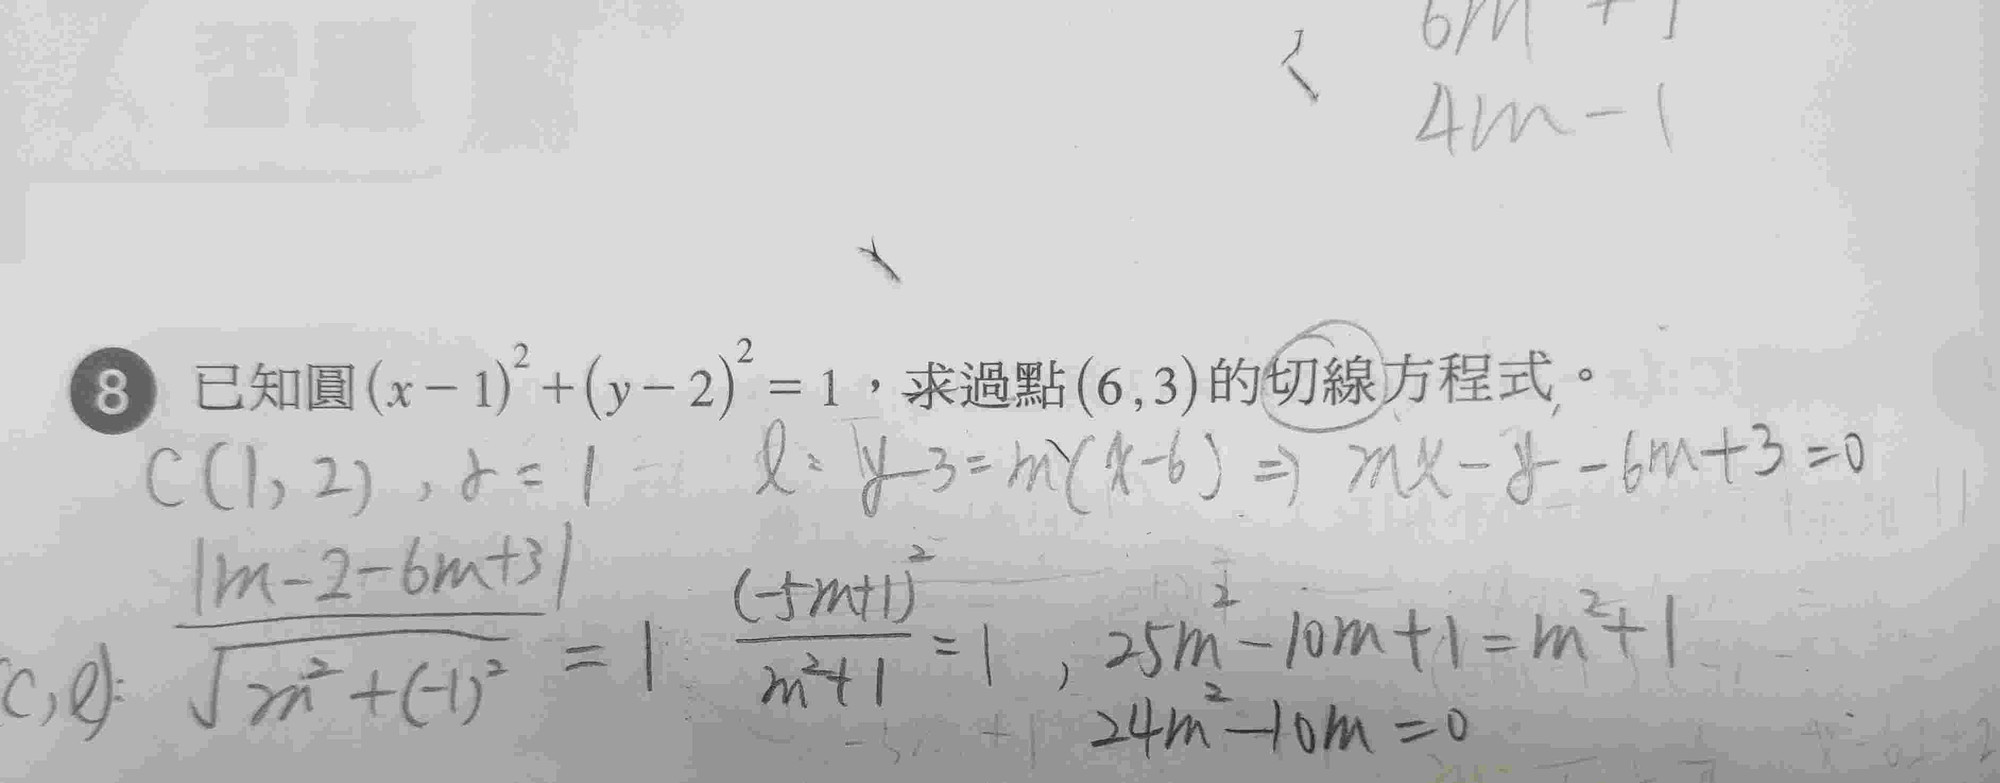 6m + 1
4m - 1
8 已知圓(x-1)²+(y-2)²=1,求過點(6,3)的切線方程式。
C(1,2), r=1 l: y-3=m(x-6) ⇒ mx-y-6m+3=0
(C,l): |m-2-6m+3| / √(m²+(-1)²) = 1 (-5m+1)² / (m²+1) = 1, 25m²-10m+1=m²+1
24m²-10m=0